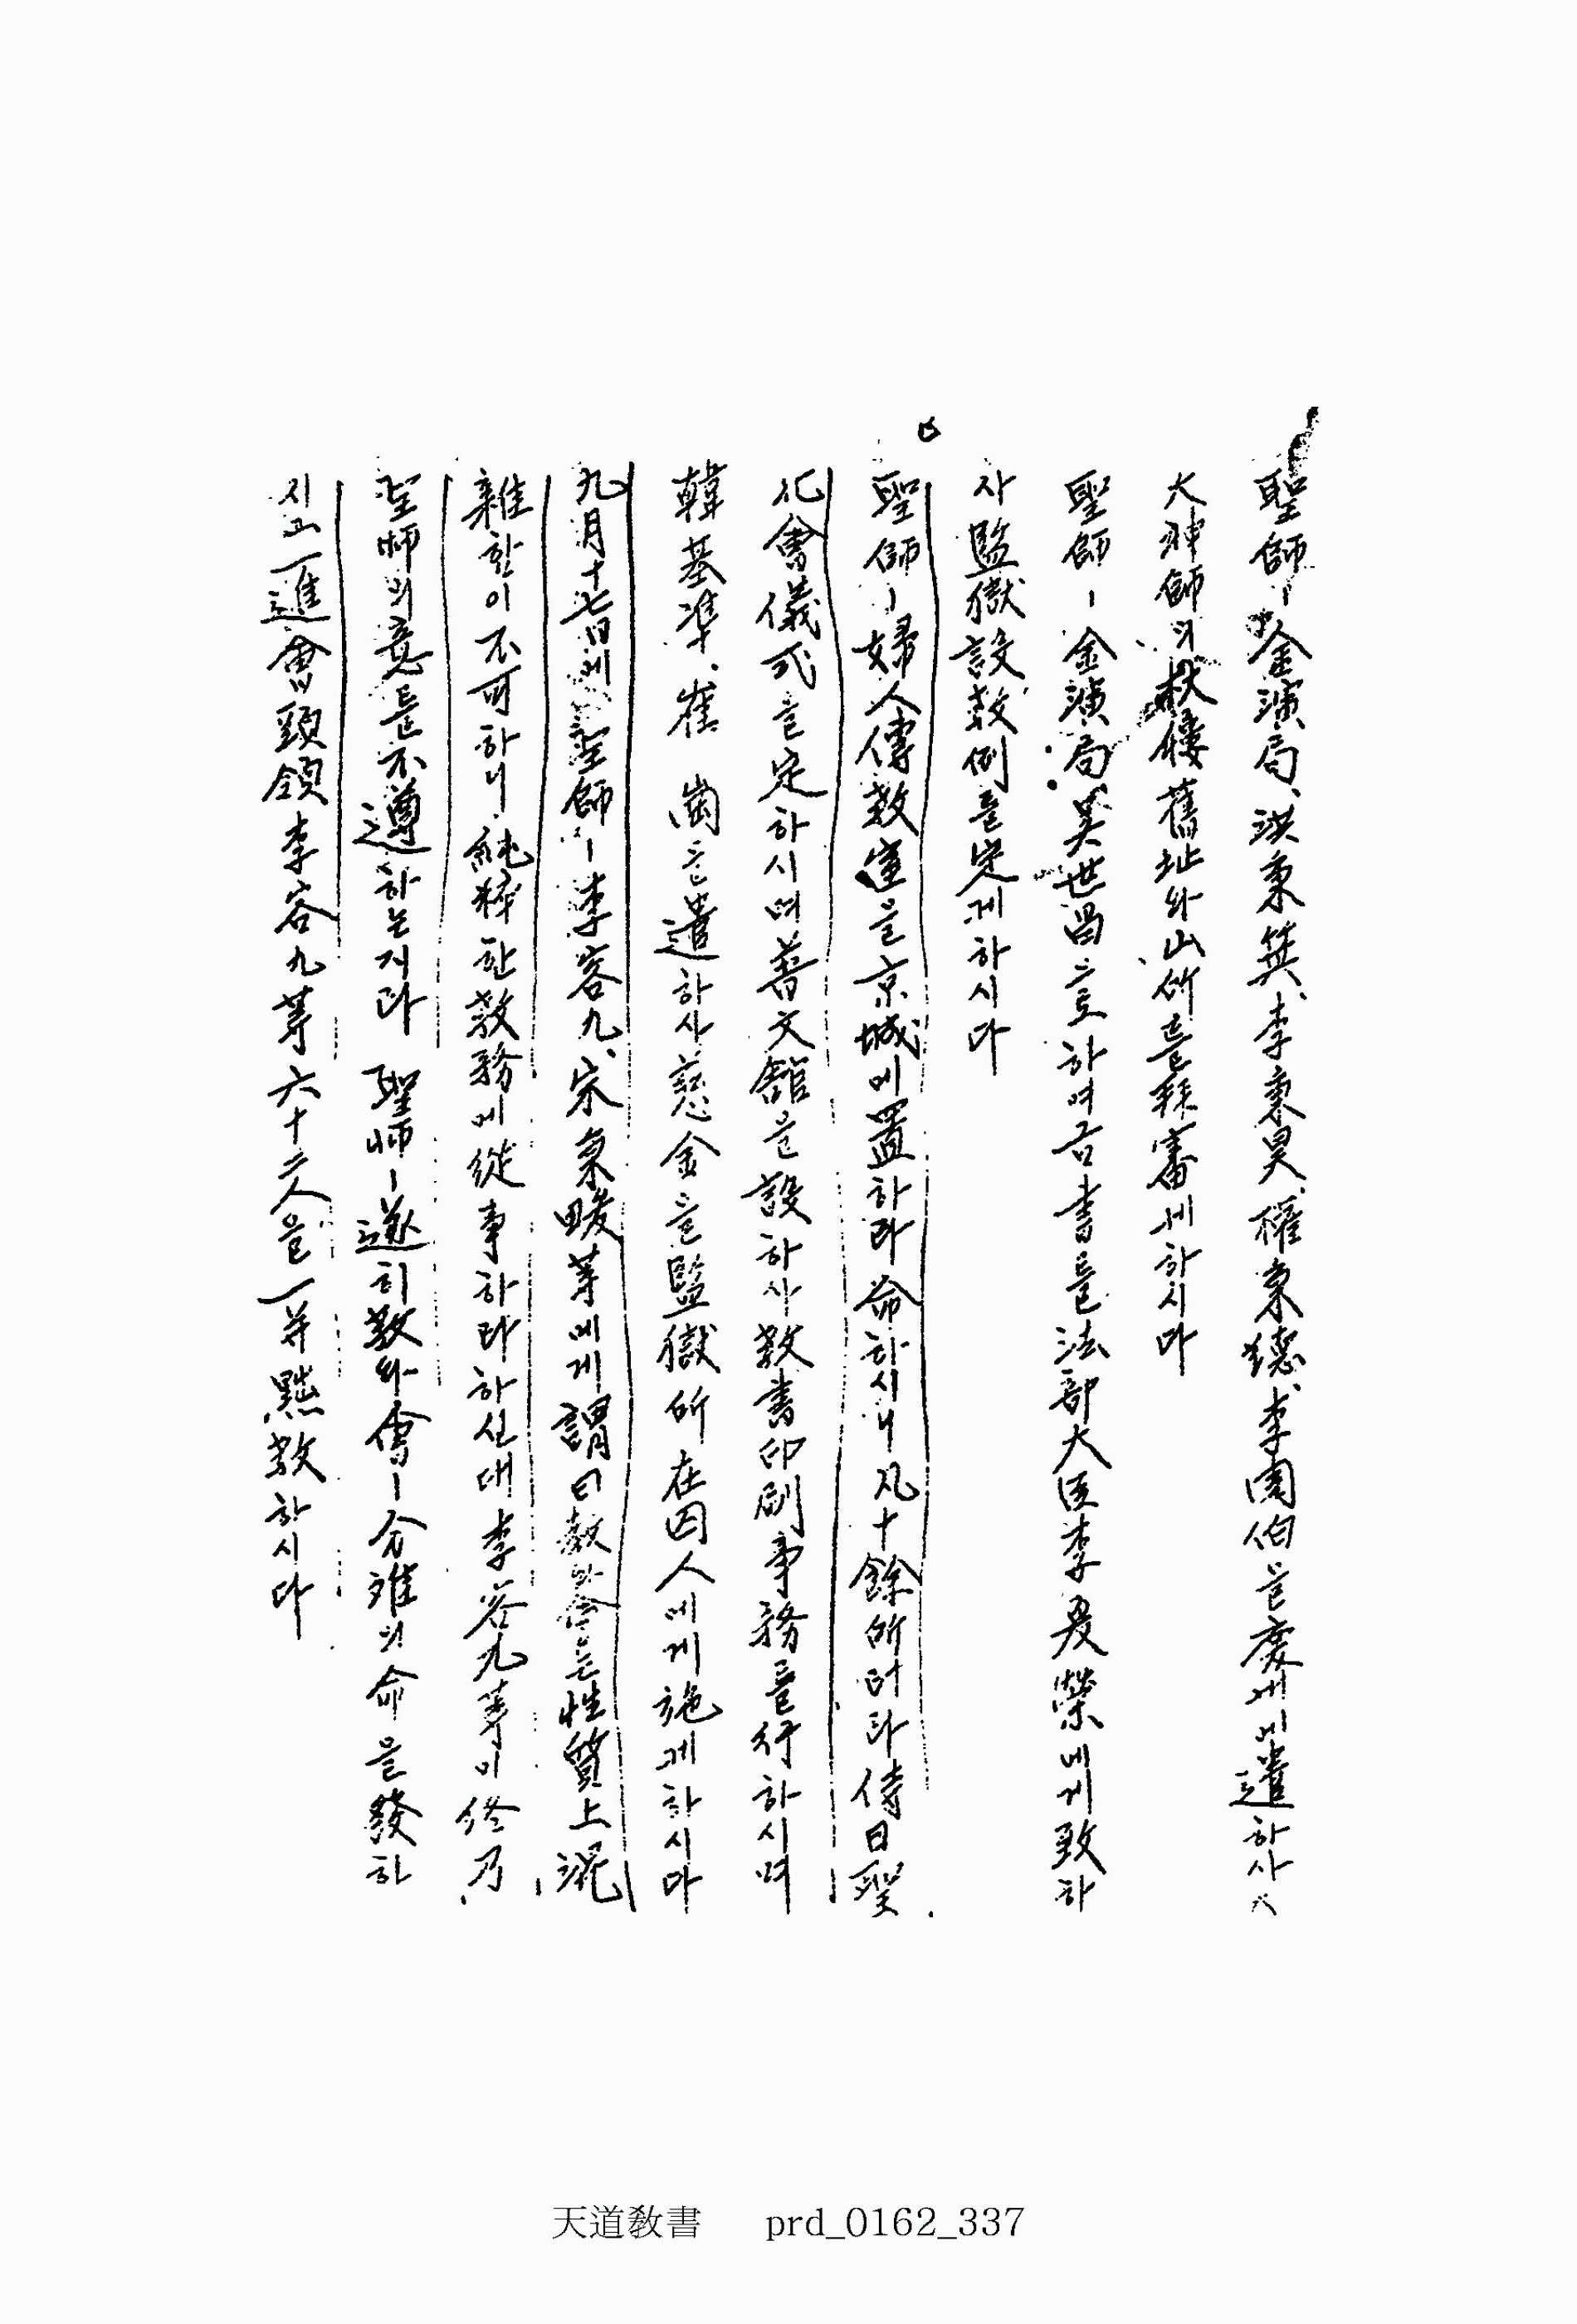 聖師ㅣ金演局、洪秉箕、李秉昊、權秉悳、李團伯을慶州에遣하사
大神師의杖僂舊址와山所를拜審케하시다
聖師ㅣ金演局、吳世昌으로하여금書를法部大臣李夏榮에게致하
사監獄設敎例를定케하시다
聖師ㅣ婦人傳敎室을京城에置하라命하시니凡十餘所더라侍日聖
化會儀式을定하시며普文舘을設하사敎書印刷事務를行하시며
韓基準、崔 崗을遣하사慈金을監獄所在囚人에게施케하시다
九月十七日에聖師ㅣ李容九、宋秉畯等에게謂曰敎와會는性質上混
雜함이不可하니純粹한敎務에從事하라하신대李容九等이終乃
聖師의意를不遵하는지라 聖師ㅣ遂히敎와會ㅣ分離의命을發하
시고一進會頭領李容九等六十二人을一幷黜敎하시다
天道敎書 prd_0162_337